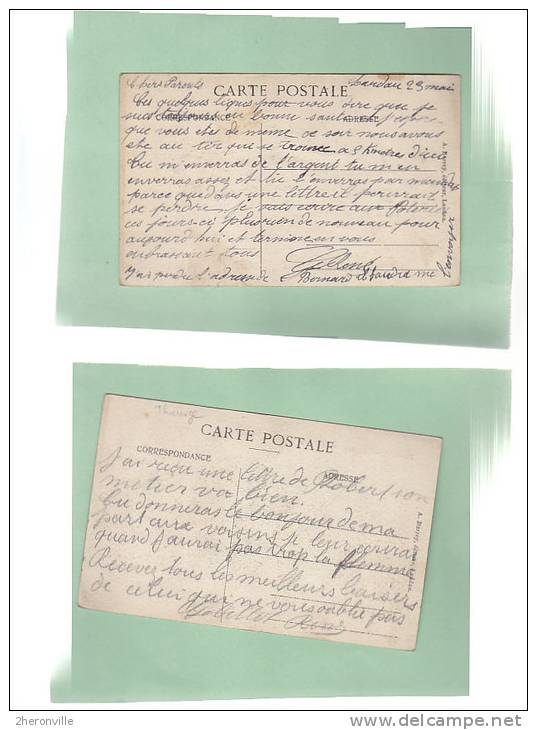 Chers Parents
CARTE POSTALE
Landau 23 mai
Ces quelques lignes pour vous dire que je
CORRESPONDANCE
ADRESSE
suis en bonne santé j'espère
que vous etes de meme ce soir nous avons
ete au tir que se trouve a kmetres d'ici
tu m'enverras de l'argent tu m'en
enverras assez et tu l'enverras par mandat
parce que dans une lettre il pourrait
se perdre je
ces jours-ci plus rien de nouveau pour
aujourd'hui et termine en vous
embrassant tous
J'ai perdu l'adresse de Bernard il faudra me
l'envoyer
CARTE POSTALE
CORRESPONDANCE
ADRESSE
J'ai reçu une lettre de Robert son
metier va bien.
tu donneras le bonjour de ma
part aux voisins je leur écrirai
quand j'aurai pas trop la flemme
Recevez tous les meilleurs baisers
de celui qui ne vous oublie pas
2heronville
www.delcampe.net